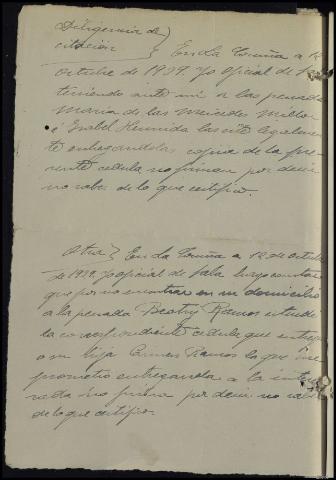 Diligencia de
citación } En La Coruña a 12
octubre de 1939. Yo Oficial de Sala
teniendo ante mi a las penadas
Maria de las Mercedes
e Isabel Hermida las cité legalmen
te entregandolas copia de la pre
sente cedula no firman por decir
no saber de lo que certifico.
Otra } En La Coruña a 12 de octubre
de 1939. Yo oficial de Sala hago constar
que por no encontrar en su domicilio
a la penada Beatriz Ramos
la correspondiente cedula que entregue
a su hija Carmen Ramos la que me
prometio entregarsela a la intere
sada no firma por decir no saber
de lo que certifico.